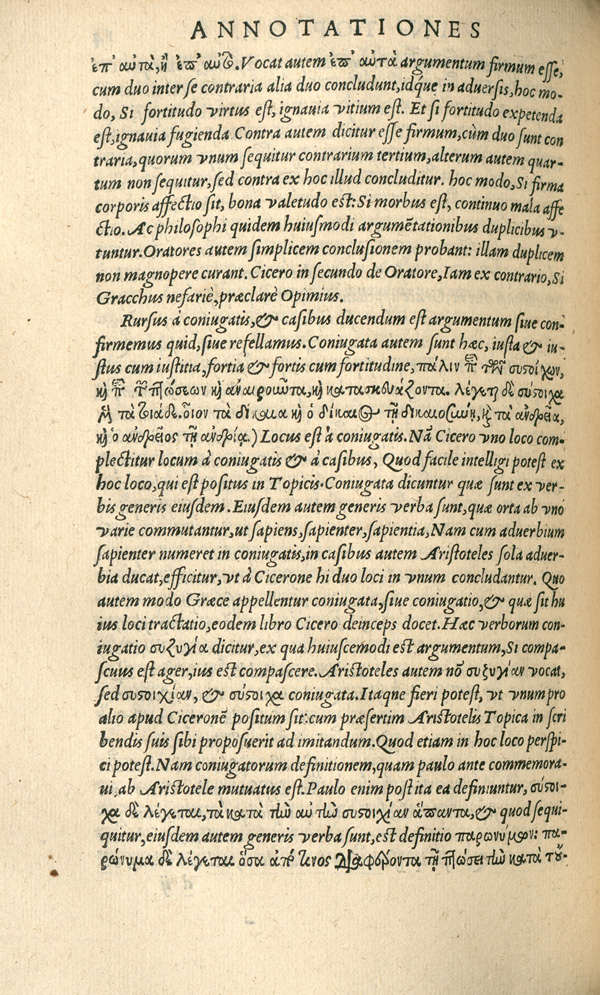 ANNOTATIONES
ἐπ' αὐτὰ, ἢ ἐπ' αὐτῷ. Vocat autem ἐπ' αὐτὰ argumentum firmum esse,
cum duo inter se contraria alia duo concludunt, idq́ue in aduersis, hoc mo-
do, Si fortitudo virtus est, ignauia vitium est. Et si fortitudo expetenda
est, ignauia fugienda. Contra autem dicitur esse firmum, cùm duo sunt con
traria, quorum vnum sequitur contrarium tertium, alterum autem quar-
tum non sequitur, sed contra ex hoc illud concluditur. hoc modo, Si firma
corporis affectio sit, bona valetudo est: Si morbus est, continuo mala affe
ctio. Ac philosophi quidem huiusmodi argumẽtationibus duplicibus v-
tuntur. Oratores autem simplicem conclusionem probant: illam duplicem
non magnopere curant. Cicero in secundo de Oratore, Iam ex contrario, Si
Gracchus nefariè, præclarè Opimius.
Rursus à coniugatis, & casibus ducendum est argumentum siue con-
firmemus quid, siue refellamus. Coniugata autem sunt hæc, iusta & iu-
stus cum iustitia, fortia & fortis cum fortitudine, πάλιν ἐπὶ τῶν συστοίχων,
καὶ ἐπὶ τῶν πτώσεων καὶ ἀναιροῦντα, καὶ κατασκευάζοντα. λέγεται δὲ σύστοιχα
μὲν τὰ τοιάδε. οἷον τὰ δίκαια καὶ ὁ δίκαιος τῇ δικαιοσύνῃ, καὶ τὰ ἀνδρεῖα,
καὶ ὁ ἀνδρεῖος τῇ ἀνδρίᾳ.) Locus est à coniugatis. Nã Cicero vno loco com-
plectitur locum à coniugatis & à casibus, Quod facile intelligi potest ex
hoc loco, qui est positus in Topicis. Coniugata dicuntur quæ sunt ex ver-
bis generis eiusdem. Eiusdem autem generis verba sunt, quæ orta ab vno
varie commutantur, ut sapiens, sapienter, sapientia, Nam cum aduerbium
sapienter numeret in coniugatis, in casibus autem Aristoteles sola aduer-
bia ducat, efficitur, vt à Cicerone hi duo loci in vnum concludantur. Quo
autem modo Græce appellentur coniugata, siue coniugatio, & quæ sit hu
ius loci tractatio, eodem libro Cicero deinceps docet. Hæc verborum con-
iugatio συζυγία dicitur, ex qua huiuscemodi est argumentum, Si compa-
scuus est ager, ius est compascere. Aristoteles autem nõ συζυγίαν vocat,
sed συστοιχίαν, & σύστοιχα coniugata. Itaque fieri potest, vt vnum pro
alio apud Ciceronẽ positum sit: cum præsertim Aristotelis Topica in scri
bendis suis sibi proposuerit ad imitandum. Quod etiam in hoc loco perspi-
ci potest. Nam coniugatorum definitionem, quam paulo ante commemora-
ui, ab Aristotele mutuatus est. Paulo enim post ita ea definiuntur, σύστοι-
χα δὲ λέγεται, τὰ κατὰ τὴν αὐτὴν συστοιχίαν ἅπαντα, & quod sequi-
quitur, eiusdem autem generis verba sunt, est definitio παρωνύμων: πα-
ρώνυμα δὲ λέγεται ὅσα ἀπό τινος διαφέροντα τῇ πτώσει τὴν κατὰ τοὔ-